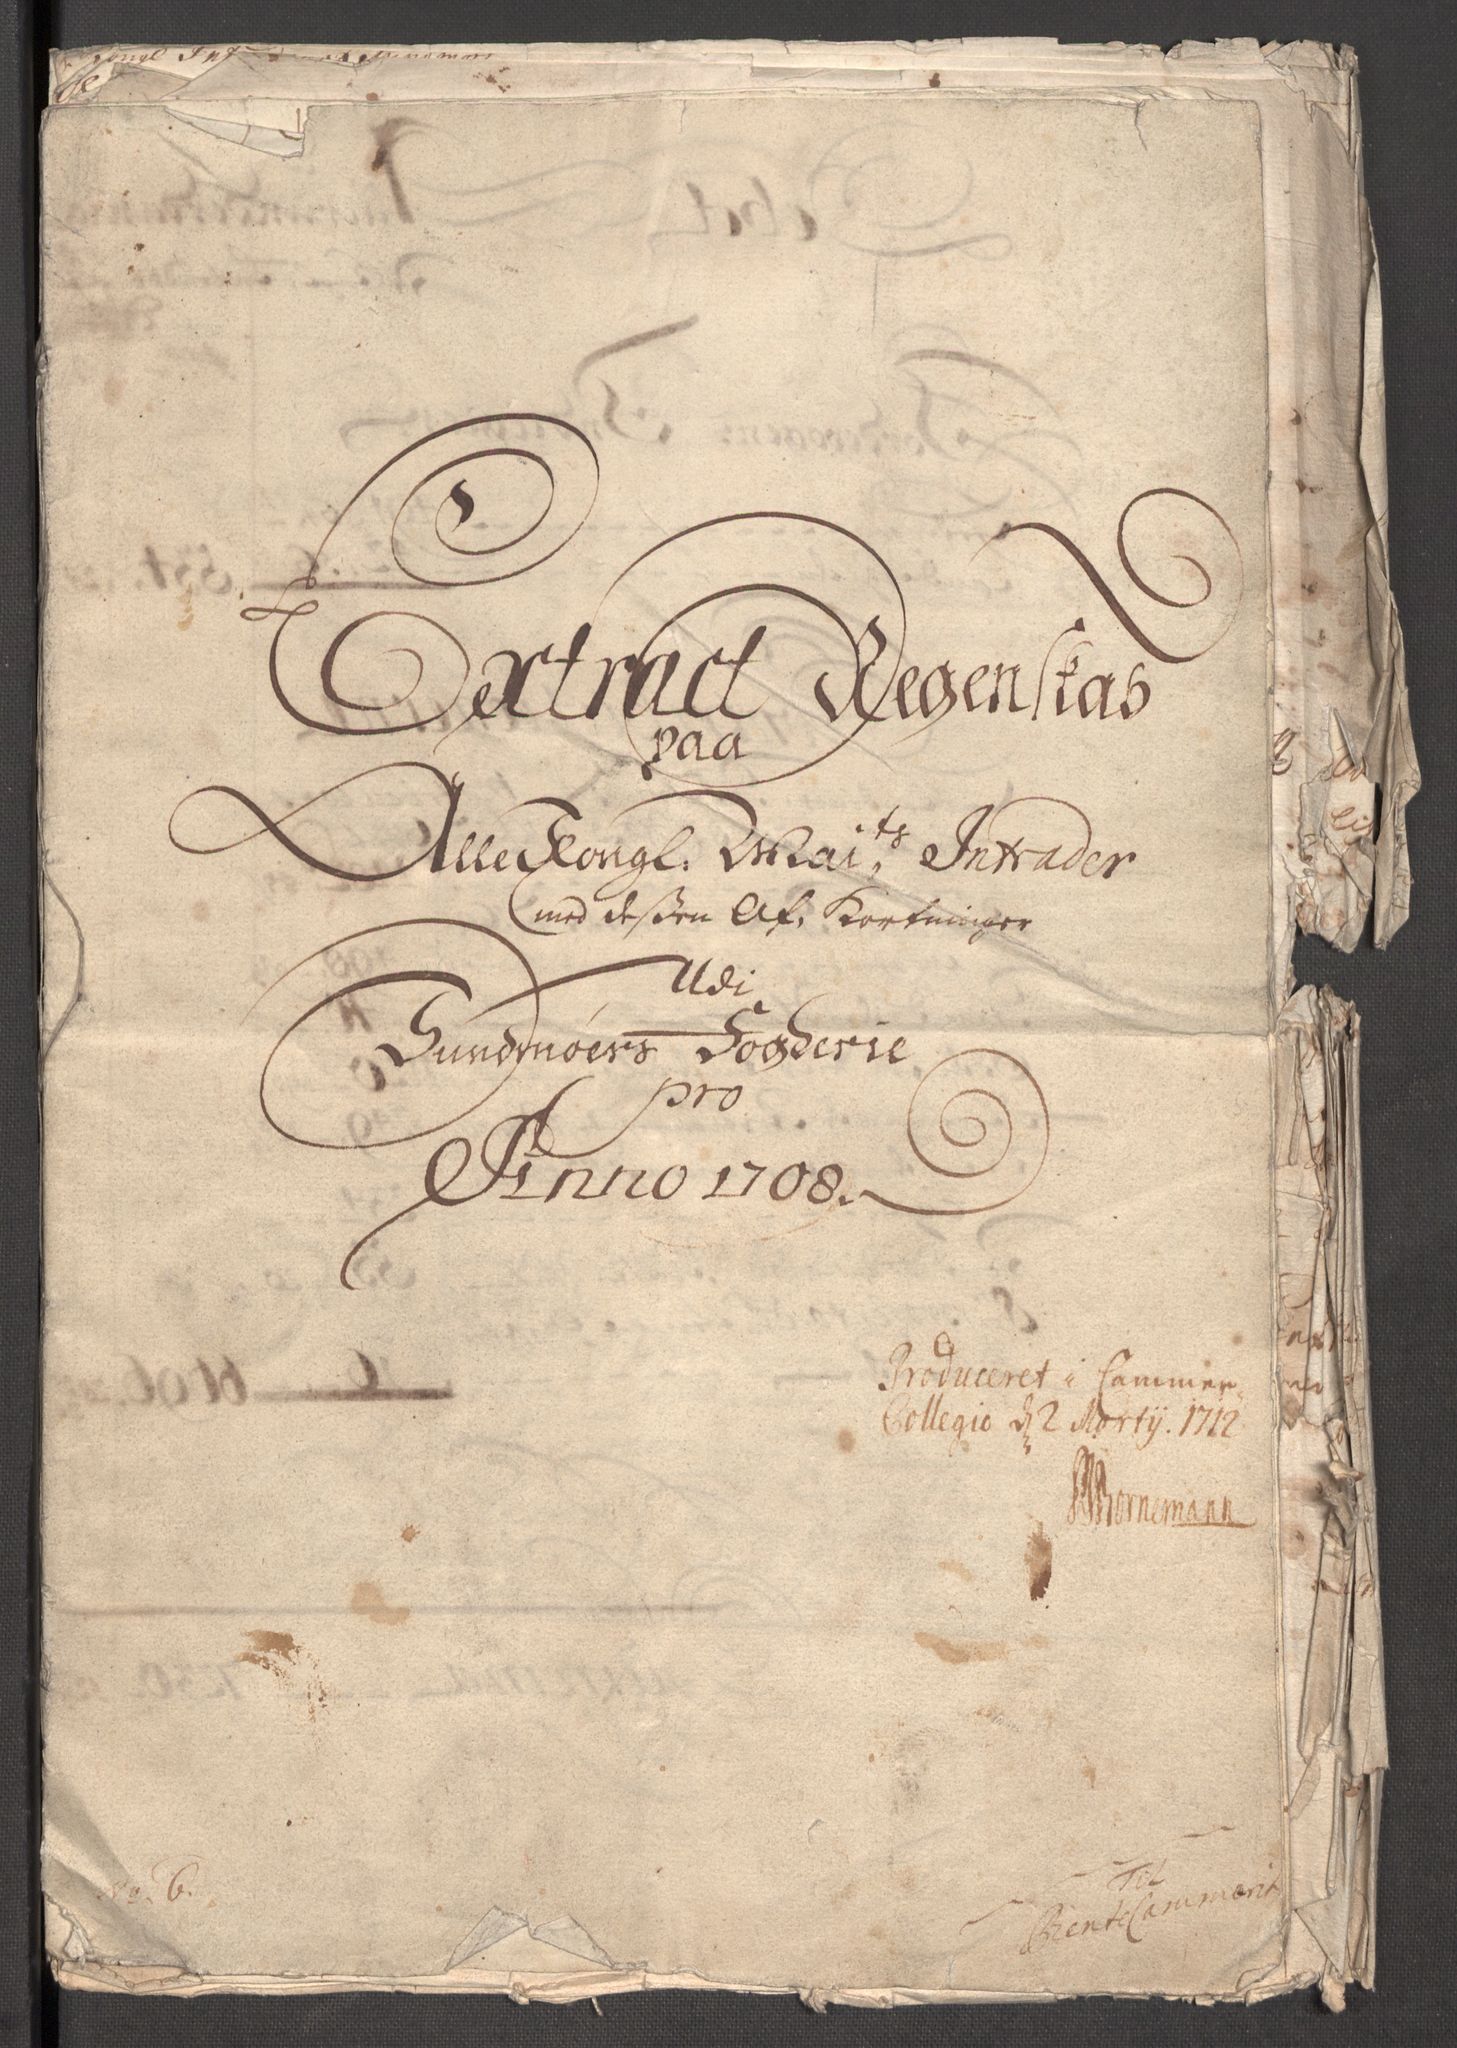 Extract Regenskab
paa
Alle Kongl. Mai.ts Intrader
med dessen Af Kortninger
Udi
Sundmöers Fogderie
pro
Anno 1708.
Produceret i Cammer
Collegio d. 2 Martij. 1712
Bornemann
No. 6.
Til
Rente Cammerit